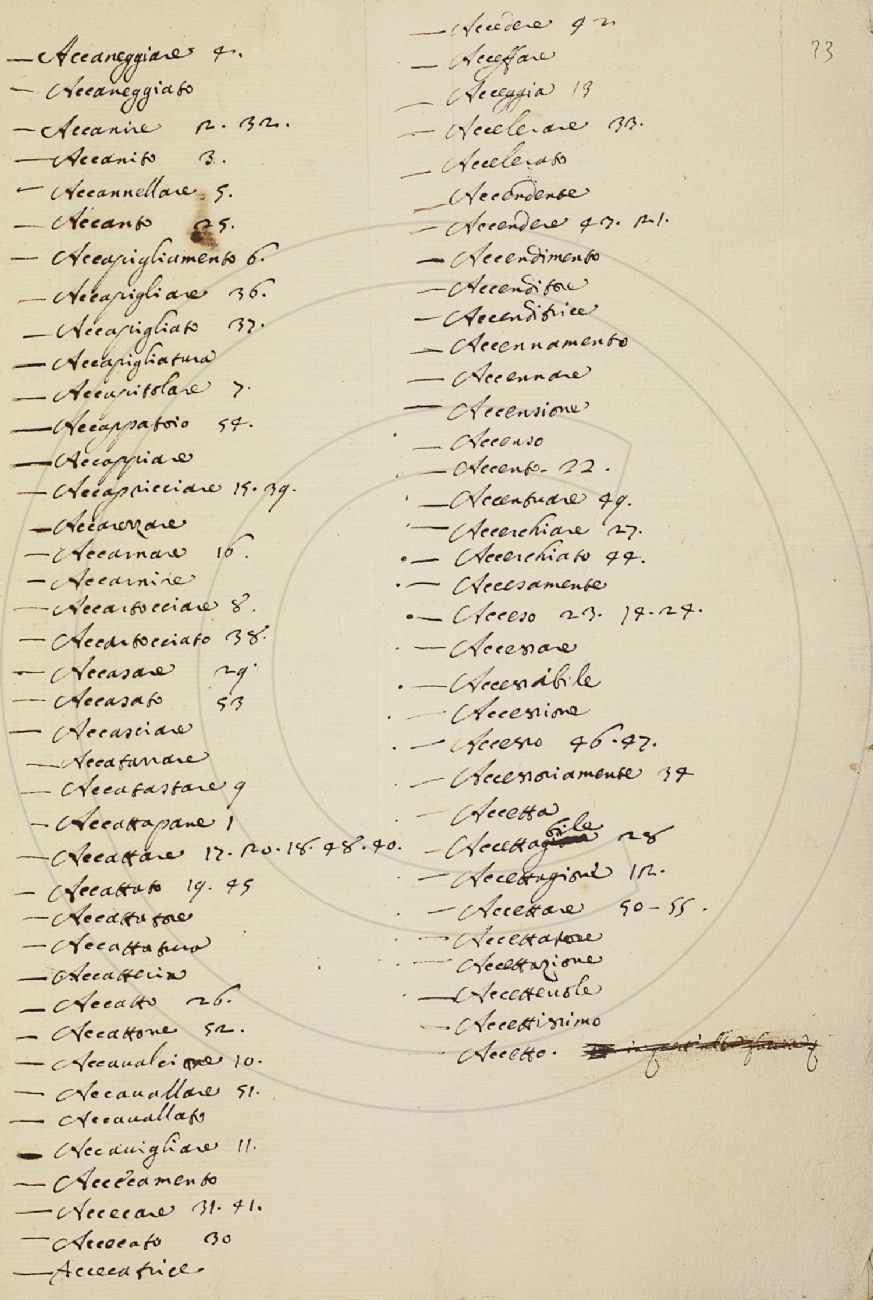 23
— Accaneggiare 4.
— Accaneggiato
— Accanire 12. 32.
— Accanito 3.
— Accannellare 5.
— Accanto 25.
— Accapigliamento 6.
— Accapigliare 36.
— Accapigliato 37.
— Accapigliatura
— Accapitolare 7.
— Accappatoio 54.
— Accappiare
— Accapricciare 15. 39.
— Accarezzare
— Accarnare 16.
— Accarnire
— Accartocciare 8.
— Accartocciato 38.
— Accasare 29.
— Accasato 53
— Accasciare
— Accatarrare
— Accatastare 9
— Accattapane 1
— Accattare 17. 20. 18. 48. 40.
— Accattato 19. 45
— Accattatore
— Accattatura
— Accatteria
— Accatto 26.
— Accattone 52.
— Accaualciare 10.
— Accauallare 51.
— Accauallato
— Accauigliare 11.
— Accecamento
— Accecare 31. 41.
— Accecato 30
— Accecatrice
— Accedere 42
— Acceffare
— Acceggia 13
— Accelerare 33.
— Accelerato
— Accendente
— Accendere 43. 21.
— Accendimento
— Accenditore
— Accenditrice
— Accennamento
— Accennare
— Accensione
— Accenso
— Accento. 22.
— Accentuare 49.
— Accerchiare 27.
— Accerchiato 44.
— Accesamente
— Acceso 23. 14. 24.
— Accessare
— Accessibile
— Accessione
— Accesso 46. 47.
— Accessoriamente 34
— Accetta
— Accettabile 28
— Accettagione 12.
— Accettare 50 — 55.
— Accettatore
— Accettazione
— Accetteuole
— Accettissimo
— Accetto.